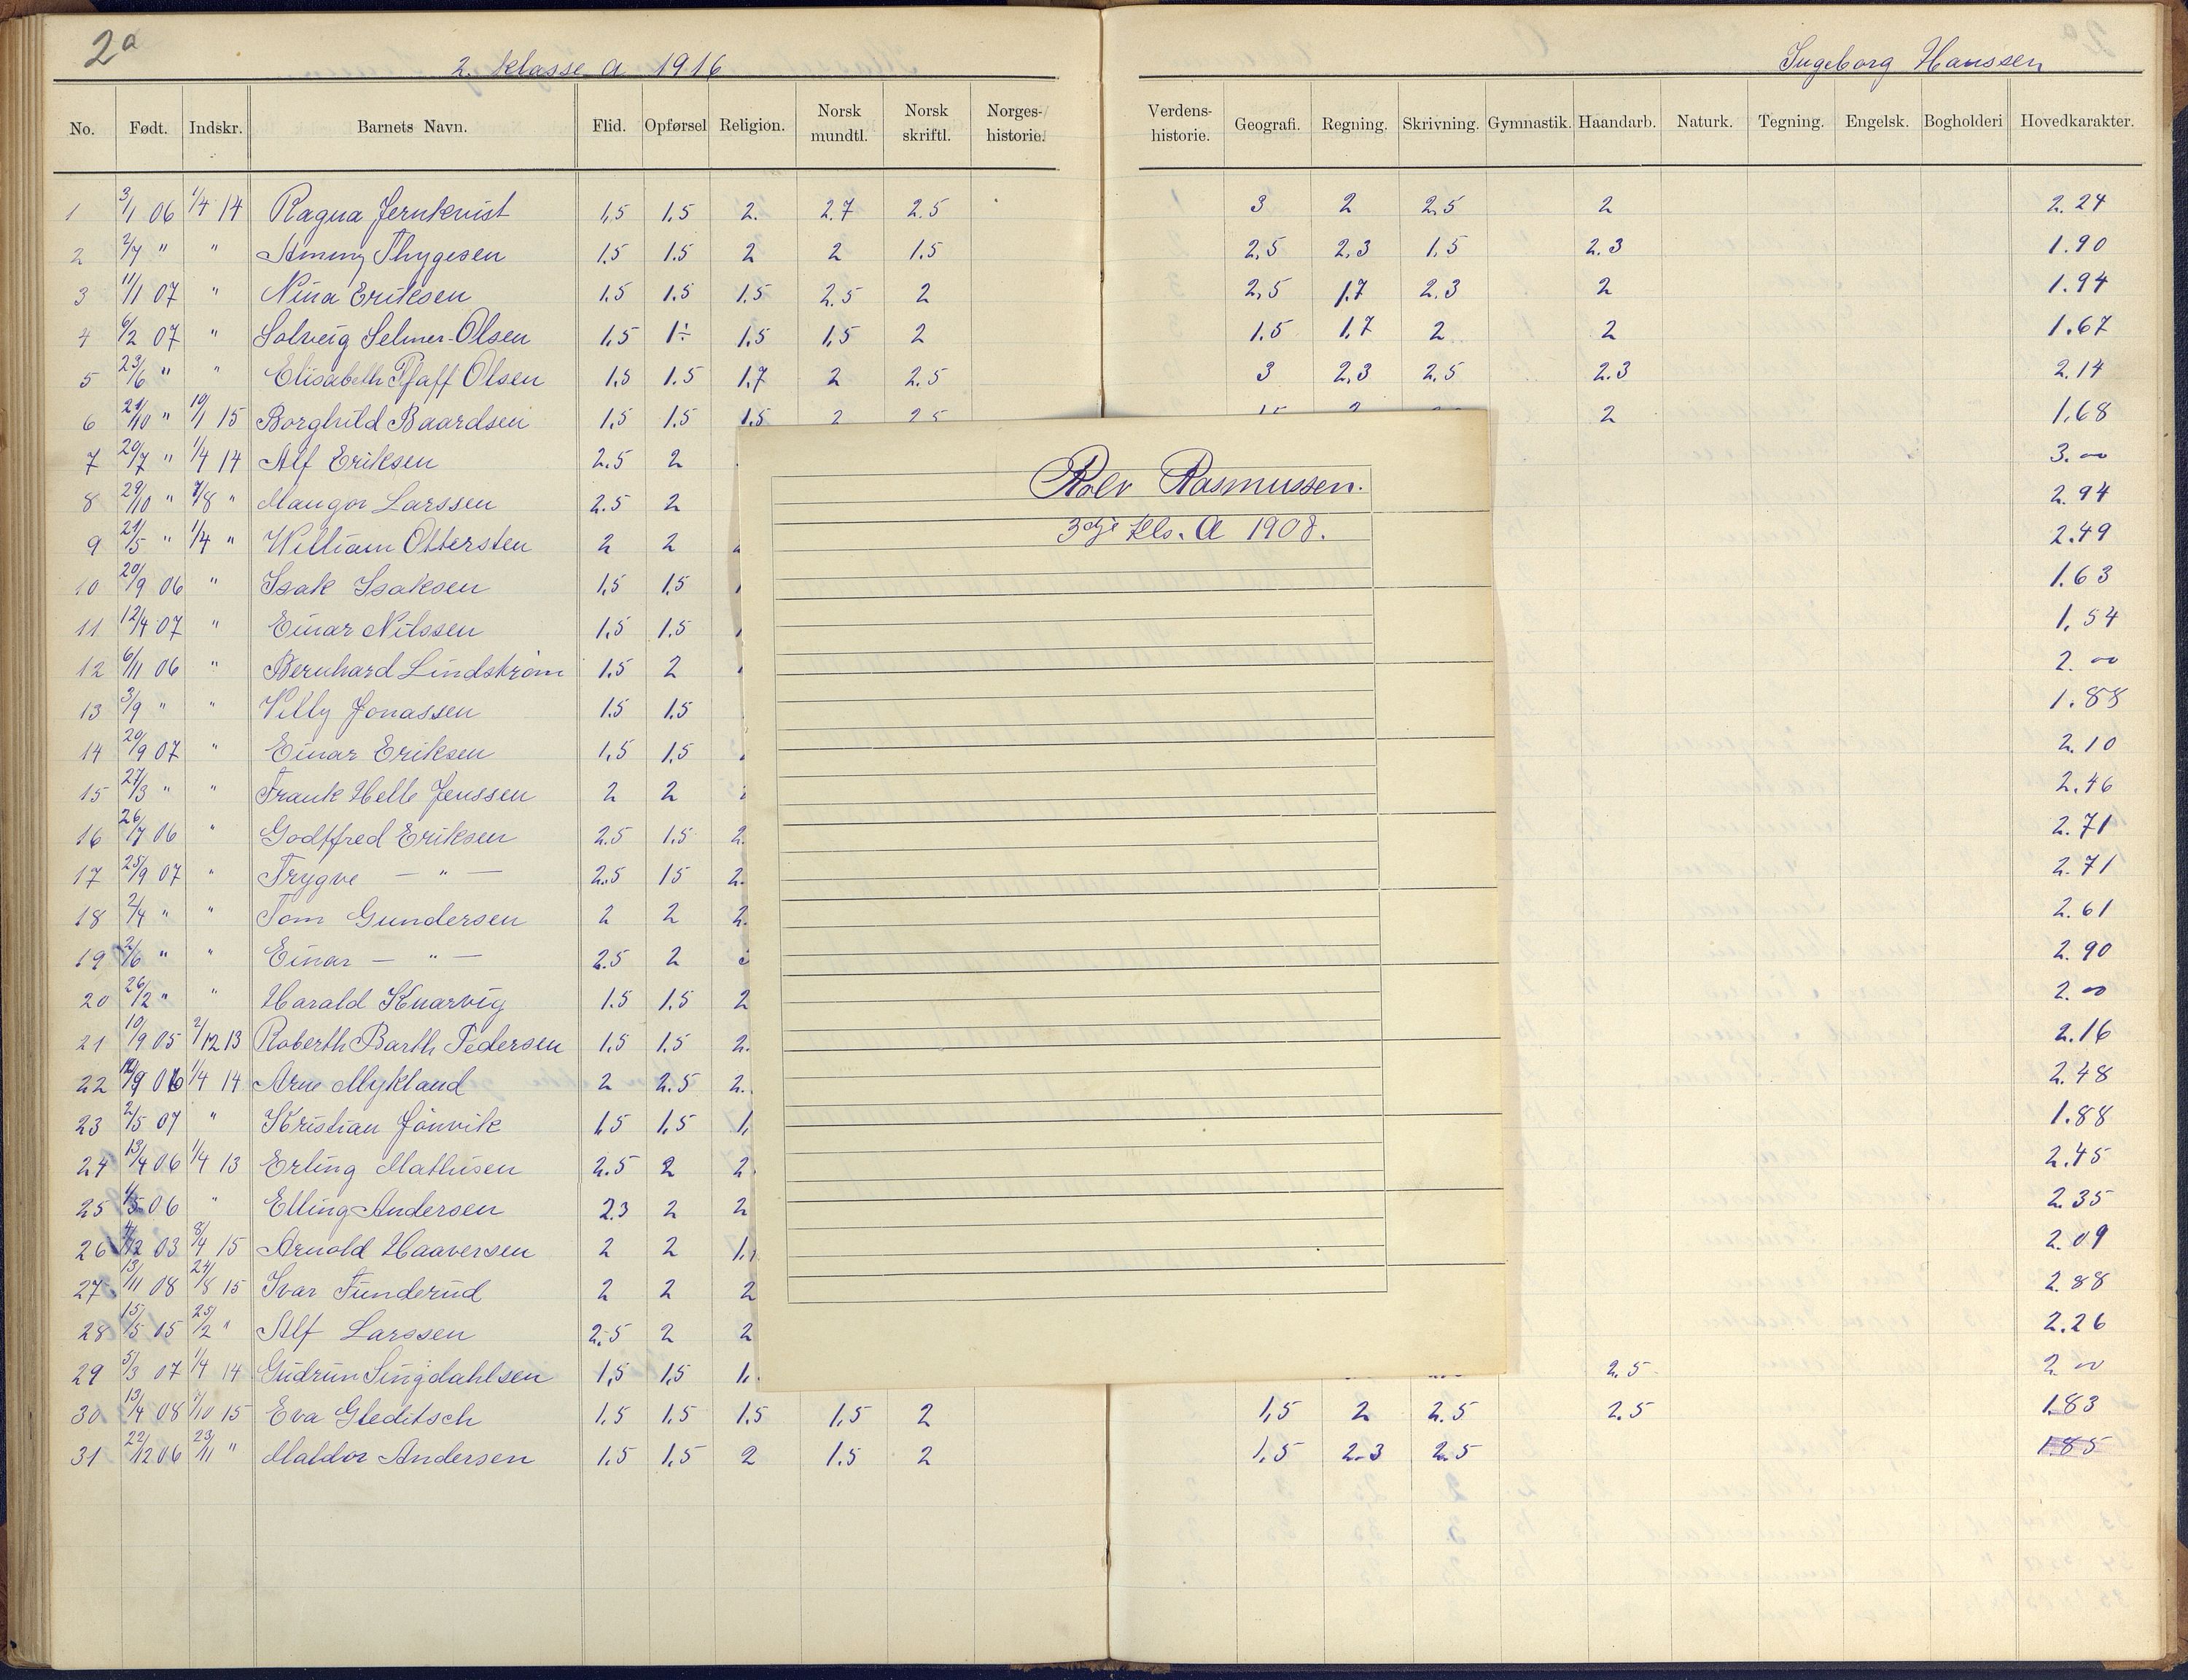 2a
2. klasse a 1916
Ingeborg Hanssen
No. Født. Indskr. Barnets Navn. Flid. Opførsel Religion. Norsk mundtl. Norsk skriftl. Norges-historie. Verdens-historie. Geografi. Regning. Skrivning. Gymnastik. Haandarb. Naturk. Tegning. Engelsk. Bogholderi Hovedkarakter.
1 3/1 06 1/4 14 Ragna Jernkvist 1,5 1,5 2. 2.7 2.5 3 2 2,5 2 2.24
2 2/7 " " Ammy Thygesen 1.5 1.5 2 2 1.5 2,5 2,3 1,5 2.3 1.90
3 11/1 07 " Nina Eriksen 1.5 1.5 1.5 2.5 2 2,5 1.7 2.3 2 1.94
4 6/2 07 " Solveig Selmer-Olsen 1,5 1÷ 1,5 1,5 2 1.5 1,7 2 2 1.67
5 23/6 " " Elisabeth Pfaff Olsen 1,5 1.5 1,7 2 2.5 3 2,3 2,5 2.3 2.14
6 21/10 " 19/1 15 Borghild Baardsen 1,5 1.5 1.5 2 2 1.68
7 20/7 " 1/4 14 Alf Eriksen 2.5 2 3.00
8 29/10 " 7/8 " Mangor Larssen 2.5 2 2.94
9 21/5 " 1/4 " William Ottersten 2 2 2.49
10 20/9 06 " Isak Isaksen 1,5 1.5 1.63
11 12/4 07 " Einar Nilssen 1.5 1.5 1,54
12 6/11 06 " Bernhard Lindstrøm 1.5 2 2.00
13 3/9 " " Villy Jonassen 1.5 1.5 1.88
14 20/9 07 " Einar Eriksen 1,5 1,5 2.10
15 27/3 " " Frank Helle Jenssen 2 2 2.46
16 26/7 06 " Godtfred Eriksen 2.5 1.5 2. 2.71
17 25/9 07 " Trygve — " — 2.5 15 2. 2.71
18 2/4 " " Tom Gundersen 2 2 2. 2.61
19 2/6 " " Einar — " — 2.5 2 2.90
20 26/2 " " Harald Knarvig 1.5 1.5 2 2.00
21 10/9 05 2/12 13 Roberth Barth Pedersen 1.5 1.5 2. 2.16
22 06 1/4 14 Arne Mykland 2 2.5 2. 2.48
23 2/5 07 " Kristian Jönvik 1,5 1,5 1, 1.88
24 13/4 06 1/4 13 Erling Mathisen 2.5 2 2 2.45
25 06 " Elling Andersen 2.3 2 2 2.35
26 03 8/4 15 Arnold Haaversen 2 2 1, 2.09
27 13/11 08 24/8 15 Ivar Funderud 2 2 2 2.88
28 15/5 05 25/2 " Alf Larssen 2.5 2 2 2.26
29 5/3 07 1/4 14 Gudrun Lingdahlsen 1,5 1,5 1. 2.5 2.00
30 13/4 08 15 Eva Gleditsch 1.5 1.5 1.5 1,5 2 1,5 2 2.5 2.5 1.83
31 22/12 06 23/11 " Maldor Andersen 1.5 1,5 2 1.5 2 1,5 2.3 2.5 1.85
Rolv Rasmussen.
3dje kls. A 1908.